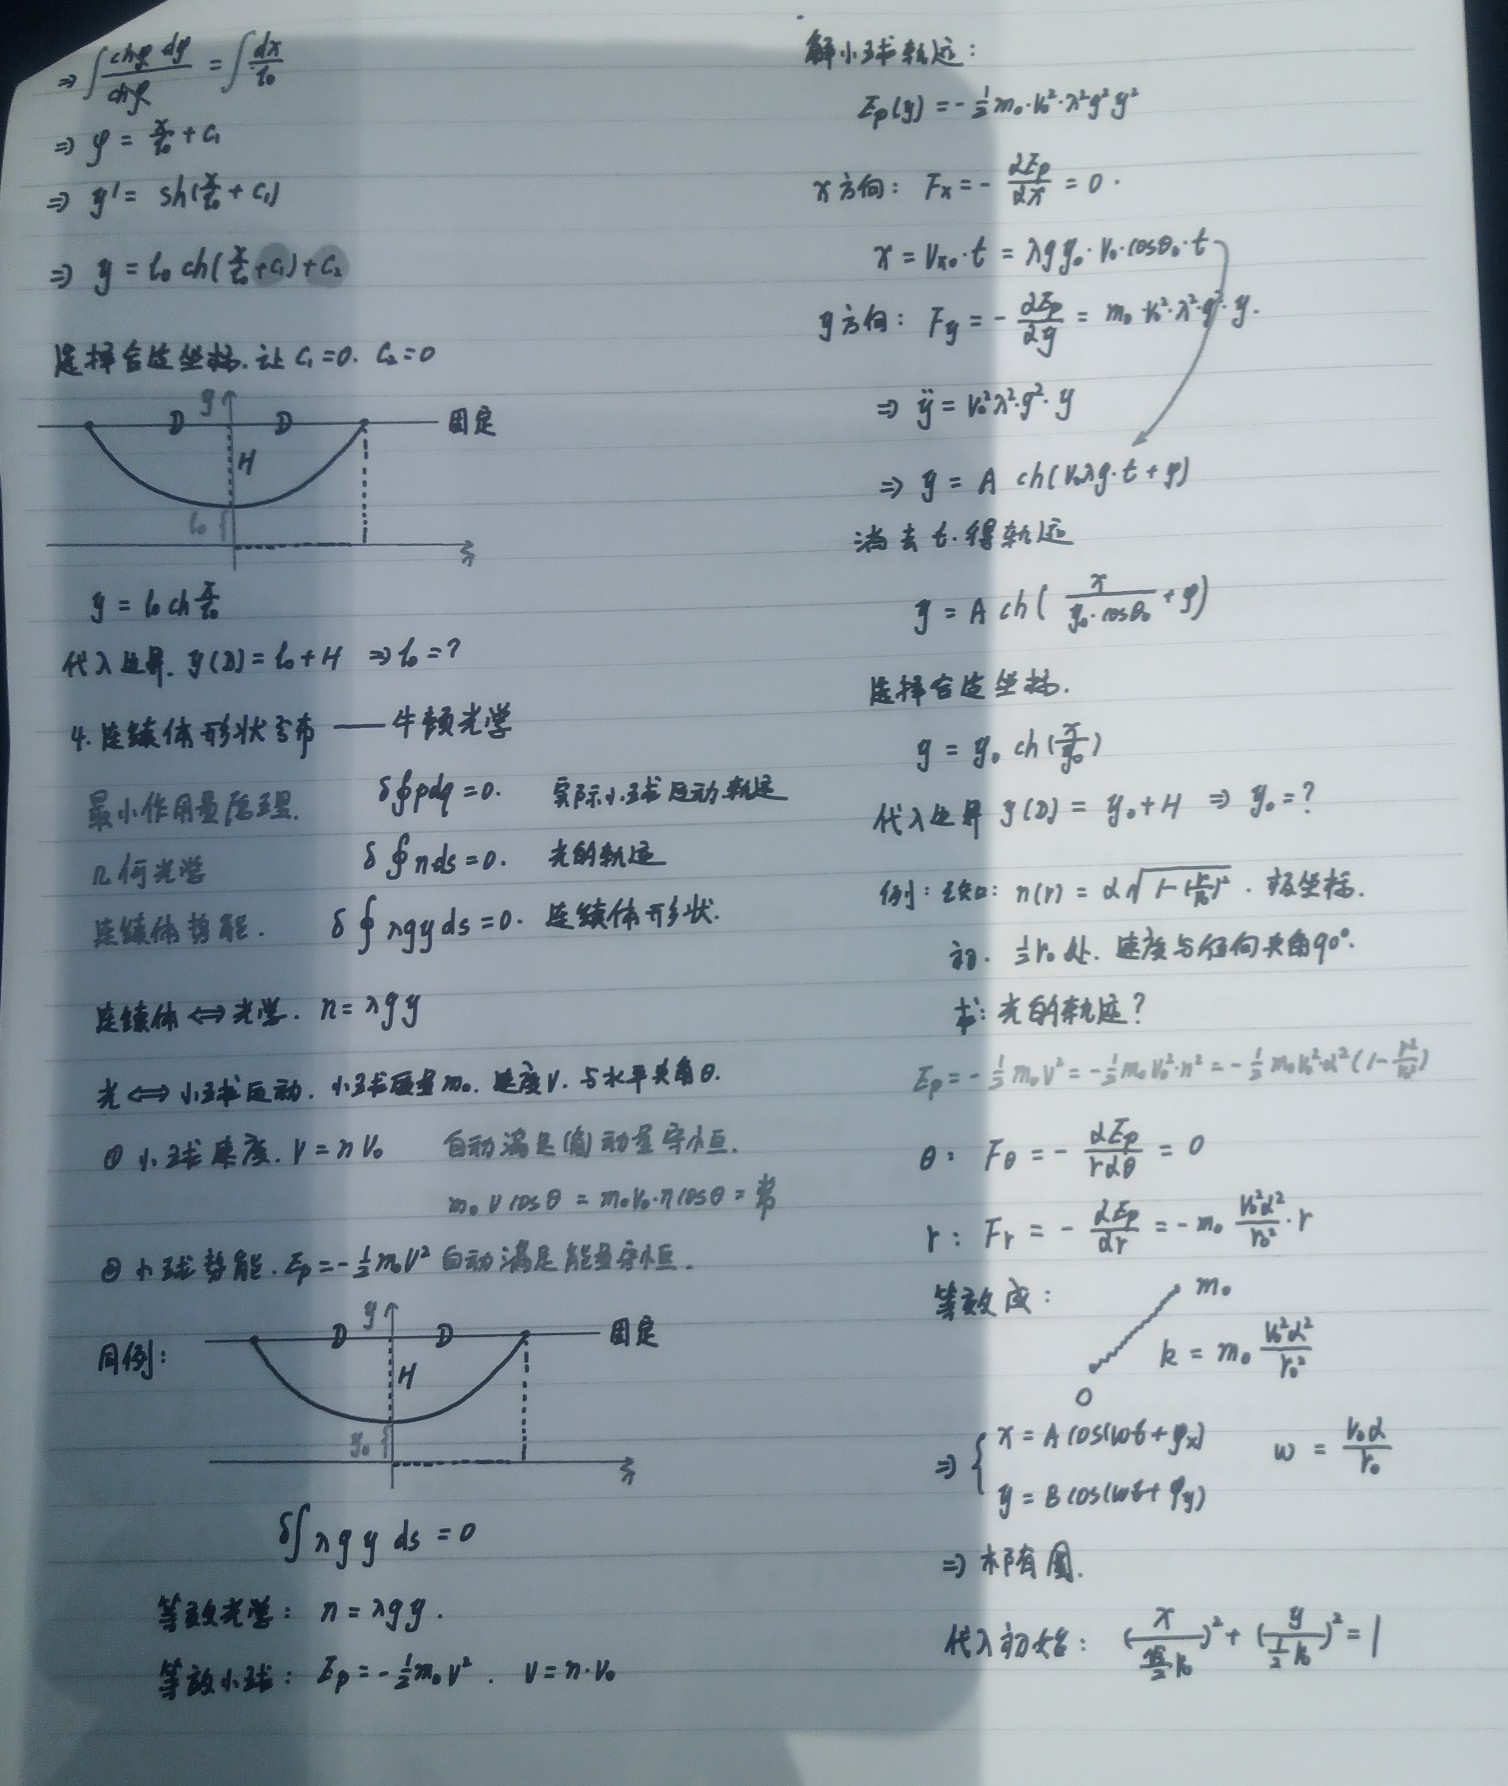 ⇒ ∫ chφ dφ / chφ = ∫ dx / l₀
⇒ φ = x/l₀ + C₁
⇒ y' = sh(x/l₀ + C₁)
⇒ y = l₀ ch(x/l₀ + C₁) + C₂
选择合适坐标. 让 C₁=0. C₂=0
y
D D 固定
H
l₀
x
y = l₀ ch x/l₀
代入边界. y(D) = l₀+H ⇒ l₀=?
4. 连续体形状分布 —— 牛顿光学
最小作用量原理. δ∮pdq=0. 实际小球运动轨迹
几何光学 δ∮nds=0. 光的轨迹
连续体势能. δ∮λgyds=0. 连续体形状.
连续体⇔光学. n=λgy
光⇔小球运动. 小球质量m₀. 速度V. 与水平夹角θ.
① 小球速度. V=nV₀ 自动满足(角)动量守恒.
m₀Vcosθ = m₀V₀·ncosθ = 常
② 小球势能. Eₚ=-½m₀V² 自动满足能量守恒.
同例:
y
D D 固定
H
y₀
x
δ∫λgy ds = 0
等效光学: n=λgy.
等效小球: Eₚ=-½m₀V². V=n·V₀
解小球轨迹:
Eₚ(y) = -½m₀·V₀²·λ²g²y²
x方向: Fx = -∂Eₚ/∂x = 0.
x = Vx₀·t = λgy₀·V₀·cosθ₀·t
y方向: Fy = -∂Eₚ/∂y = m₀·V₀²·λ²·g²·y.
⇒ ÿ = V₀²λ²·g²·y
⇒ y = A ch(V₀λg·t+φ)
消去t. 得轨迹
y = A ch( x/(y₀·cosθ₀) + φ)
选择合适坐标.
y = y₀ ch(x/y₀)
代入边界 y(D) = y₀+H ⇒ y₀=?
例: 已知: n(r) = α√(1-(r/r₀)²). 极坐标.
初. ½r₀处. 速度与径向夹角90°.
求: 光的轨迹?
Eₚ = -½m₀V² = -½m₀V₀²·n² = -½m₀V₀²·α²(1-r²/r₀²)
θ: Fθ = -∂Eₚ/r∂θ = 0
r: Fr = -∂Eₚ/∂r = -m₀ V₀²α²/r₀² ·r
等效成: m₀
k = m₀ V₀²α²/r₀²
O
⇒ { x = A cos(ωt+φx) ω = V₀α/r₀
y = B cos(ωt+φy)
⇒ 椭圆.
代入初始: (x/(√3/2 r₀))² + (y/(½r₀))² = 1